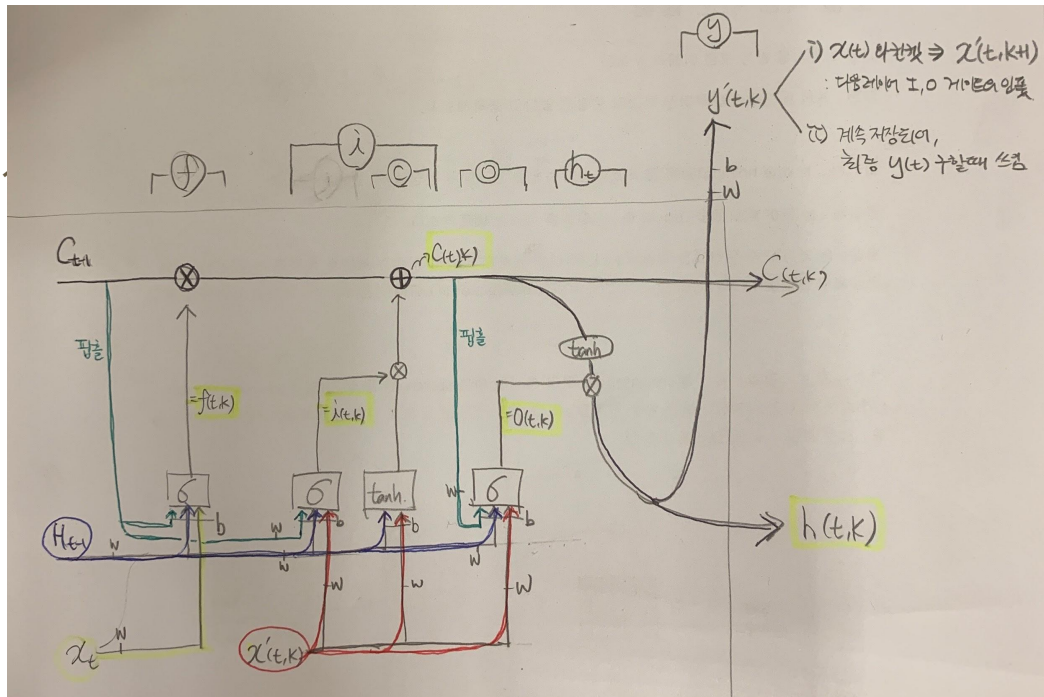 y
i) x(t) 와 한짝 ⇒ x'(t,k+1)
: 다음레이어 I,O 게이트의 인풋
ii) 계속 저장되어,
최종 y(t) 구할때 쓰임
y'(t,k)
b
W
f
i
i
C
O
h_t
C_t-1
C(t,k)
C(t,k)
핍홀
핍홀
tanh
=f(t,k)
=i(t,k)
=O(t,k)
σ
σ
tanh
σ
W
b
b
b
b
H_t-1
W
W
W
W
h(t,k)
W
W
W
x_t
W
x'(t,k)